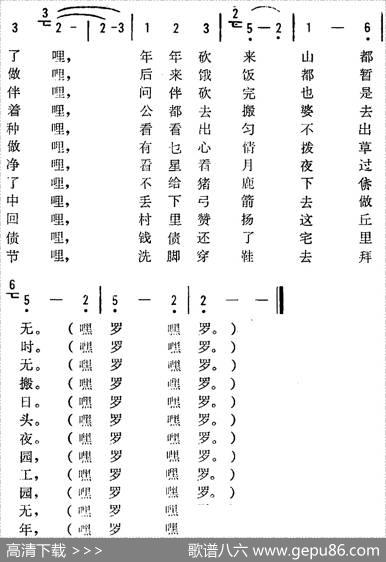 3 2 - 2-3 1 2 3 5-2 1 - 6
了 哩， 年 年 砍 来 山 都
做 哩， 后 来 饿 饭 都 暂
伴 哩， 问 伴 砍 完 也 是
着 哩， 公 都 去 搬 婆 去
种 哩， 看 看 出 匀 不 出
做 哩， 有 乜 心 情 拨 草
净 哩， 看 星 看 月 夜 过
了 哩， 不 给 猪 鹿 下
中 哩， 丢 下 弓 箭 去 做
回 哩， 村 里 赞 扬 这 丘
债 哩， 钱 债 还 了 宅 里
节 哩， 洗 脚 穿 鞋 去 拜
5 - 2 5 - 2 2 - -
无。（嘿 罗 嘿 罗。）
时。（嘿 罗 嘿 罗。）
无。（嘿 罗 嘿 罗。）
搬。（嘿 罗 嘿 罗。）
日。（嘿 罗 嘿 罗。）
头。（嘿 罗 嘿 罗。）
夜。（嘿 罗 嘿 罗。）
园，（嘿 罗 嘿 罗。）
工，（嘿 罗 嘿 罗。）
园，（嘿 罗 嘿 罗。）
无，（嘿 罗 嘿
年，（嘿 罗 嘿
高清下载 >>> 歌谱八六 www.gepu86.com